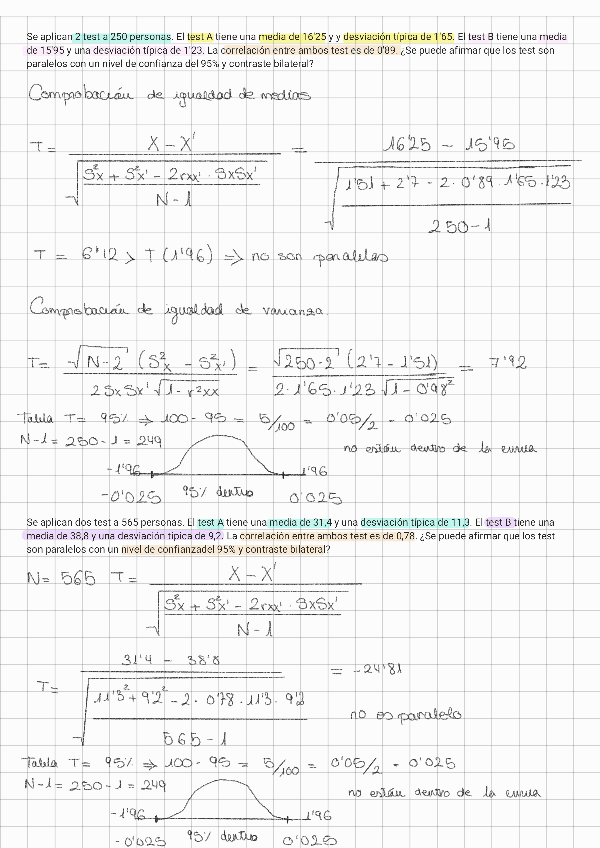 Se aplican 2 test a 250 personas. El test A tiene una media de 16'25 y y desviación típica de 1'65. El test B tiene una media
de 15'95 y una desviación típica de 1'23. La correlación entre ambos test es de 0'89. ¿Se puede afirmar que los test son
paralelos con un nivel de confianza del 95% y contraste bilateral?
Comprobación de igualdad de medias
T = X - X' / √(S²x + S²x' - 2rxx' · SxSx' / N-1) = 16'25 - 15'95 / √(1'51 + 2'7 - 2 · 0'89 · 1'65 · 1'23 / 250-1)
T = 6'12 > T (1'96) ⇒ no son paralelas
Comprobación de igualdad de varianza.
T = √N-2 (S²x - S²x') / 2SxSx' √1-r²xx = √250-2 (2'7 - 1'51) / 2·1'65·1'23 √1-0'98² = 7'92
Tabla T = 95% ⇒ 100 - 95 = 5/100 = 0'05/2 = 0'025
N-1 = 250-1 = 249
no están dentro de la curva
-1'96 1'96
-0'025 95% dentro 0'025
Se aplican dos test a 565 personas. El test A tiene una media de 31,4 y una desviación típica de 11,3. El test B tiene una
media de 38,8 y una desviación típica de 9,2. La correlación entre ambos test es de 0,78. ¿Se puede afirmar que los test
son paralelos con un nivel de confianzadel 95% y contraste bilateral?
N= 565 T = X - X' / √(S²x + S²x' - 2rxx' · SxSx' / N-1)
T = 31'4 - 38'8 / √(11'3² + 9'2² - 2 · 0'78 · 11'3 · 9'2 / 565-1) = -24'81
no es paralelo
Tabla T = 95% ⇒ 100 - 95 = 5/100 = 0'05/2 = 0'025
N-1 = 250-1 = 249
no están dentro de la curva
-1'96 1'96
-0'025 95% dentro 0'025